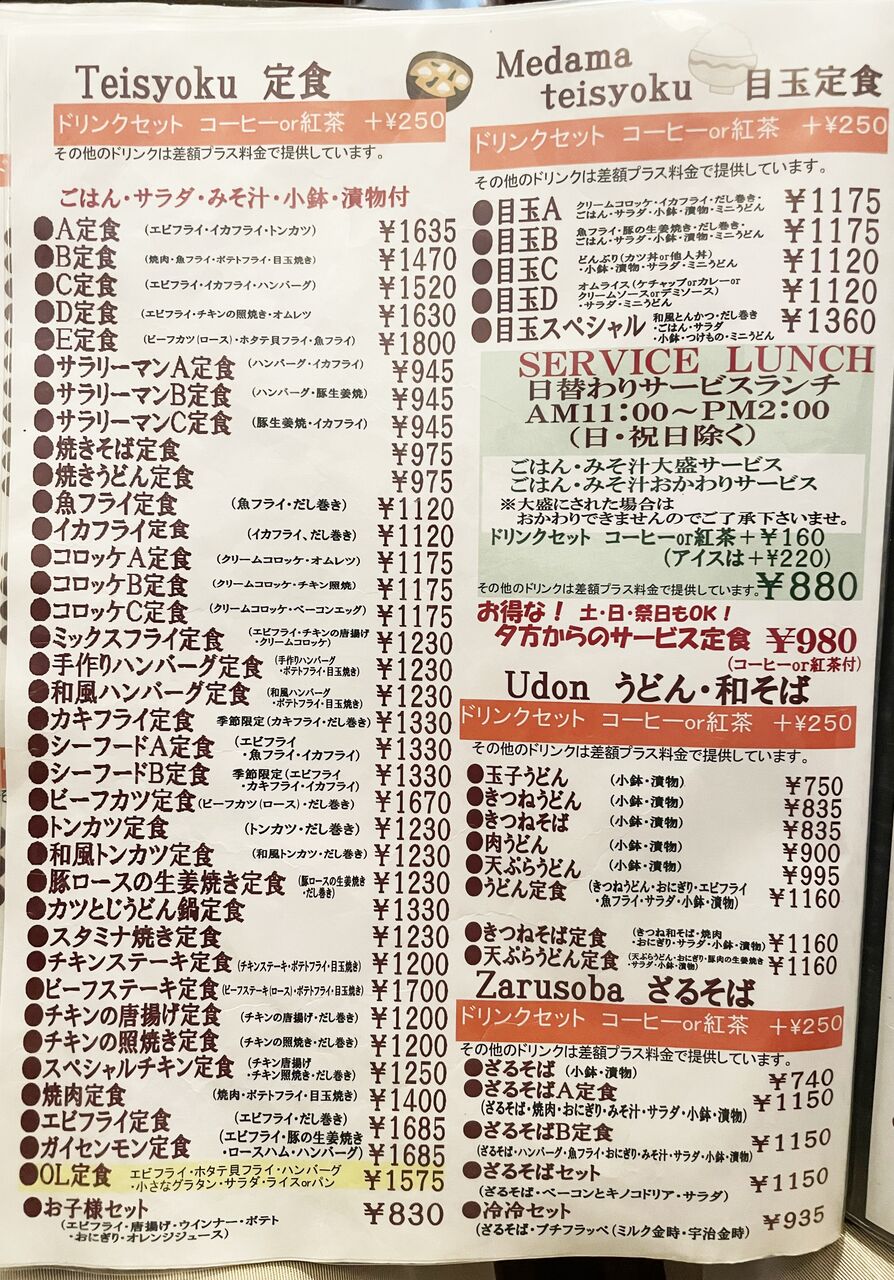 Teisyoku 定食
ドリンクセット コーヒーor紅茶 +¥250
その他のドリンクは差額プラス料金で提供しています。
ごはん・サラダ・みそ汁・小鉢・漬物付
●A定食 (エビフライ・イカフライ・トンカツ) ¥1635
●B定食 (焼肉・魚フライ・ポテトフライ・目玉焼き) ¥1470
●C定食 (エビフライ・イカフライ・ハンバーグ) ¥1520
●D定食 (エビフライ・チキンの照焼き・オムレツ ¥1630
●E定食 (ビーフカツ(ロース)・ホタテ貝フライ・魚フライ) ¥1800
●サラリーマンA定食 (ハンバーグ・イカフライ) ¥945
●サラリーマンB定食 (ハンバーグ・豚生姜焼) ¥945
●サラリーマンC定食 (豚生姜焼・イカフライ) ¥945
●焼きそば定食 ¥975
●焼きうどん定食 ¥975
●魚フライ定食 (魚フライ・だし巻き) ¥1120
●イカフライ定食 (イカフライ、だし巻き) ¥1120
●コロッケA定食 (クリームコロッケ・オムレツ) ¥1175
●コロッケB定食 (クリームコロッケ・チキン照焼) ¥1175
●コロッケC定食 (クリームコロッケ・ベーコンエッグ) ¥1175
●ミックスフライ定食 (エビフライ・チキンの唐揚げ ¥1230
・クリームコロッケ)
●手作りハンバーグ定食 (手作りハンバーグ ¥1230
・ポテトフライ・目玉焼き)
●和風ハンバーグ定食 (和風ハンバーグ ¥1230
・ポテトフライ・目玉焼き)
●カキフライ定食 季節限定(カキフライ・だし巻き) ¥1330
●シーフードA定食 (エビフライ ¥1330
・魚フライ・イカフライ)
●シーフードB定食 季節限定(エビフライ ¥1330
・カキフライ・イカフライ)
●ビーフカツ定食 (ビーフカツ(ロース)・だし巻き) ¥1670
●トンカツ定食 (トンカツ・だし巻き) ¥1230
●和風トンカツ定食 (和風トンカツ・だし巻き) ¥1230
●豚ロースの生姜焼き定食 (豚ロースの生姜焼き ¥1230
・だし巻き)
●カツとじうどん鍋定食 ¥1330
●スタミナ焼き定食 ¥1230
●チキンステーキ定食 (チキンステーキ・ポテトフライ・目玉焼き) ¥1200
●ビーフステーキ定食 (ビーフステーキ(ロース)・ポテトフライ・目玉焼き) ¥1700
●チキンの唐揚げ定食 (チキンの唐揚げ・だし巻き) ¥1200
●チキンの照焼き定食 (チキンの照焼き・だし巻き) ¥1200
●スペシャルチキン定食 (チキン唐揚げ ¥1250
・チキン照焼き・だし巻き)
●焼肉定食 (焼肉・ポテトフライ・目玉焼き) ¥1400
●エビフライ定食 (エビフライ・だし巻き) ¥1685
●ガイセンモン定食 (エビフライ・豚の生姜焼き ¥1685
・ロースハム・ハンバーグ)
●OL定食 エビフライ・ホタテ貝フライ・ハンバーグ ¥1575
・小さなグラタン・サラダ・ライスorパン
●お子様セット ¥830
(エビフライ・唐揚げ・ウインナー・ポテト
・おにぎり・オレンジジュース)
Medama
teisyoku 目玉定食
ドリンクセット コーヒーor紅茶 +¥250
その他のドリンクは差額プラス料金で提供しています。
●目玉A クリームコロッケ・イカフライ・だし巻き・ ¥1175
ごはん・サラダ・小鉢・漬物・ミニうどん
●目玉B 魚フライ・豚の生姜焼き・だし巻き・ ¥1175
ごはん・サラダ・小鉢・漬物・ミニうどん
●目玉C どんぶり(カツ丼or他人丼) ¥1120
・小鉢・漬物・サラダ・ミニうどん
●目玉D オムライス(ケチャップorカレーor ¥1120
クリームソースorデミソース)
・サラダ・ミニうどん
●目玉スペシャル 和風とんかつ・だし巻き ¥1360
・ごはん・サラダ
・小鉢・つけもの・ミニうどん
SERVICE LUNCH
日替わりサービスランチ
AM11:00~PM2:00
(日・祝日除く)
ごはん・みそ汁大盛サービス
ごはん・みそ汁おかわりサービス
※大盛にされた場合は
おかわりできませんのでご了承下さいませ。
ドリンクセット コーヒーor紅茶+¥160
(アイスは+¥220)
その他のドリンクは差額プラス料金で提供しています。 ¥880
お得な! 土・日・祭日もOK!
夕方からのサービス定食 ¥980
(コーヒーor紅茶付)
Udon うどん・和そば
ドリンクセット コーヒーor紅茶 +¥250
その他のドリンクは差額プラス料金で提供しています。
●玉子うどん (小鉢・漬物) ¥750
●きつねうどん (小鉢・漬物) ¥835
●きつねそば (小鉢・漬物) ¥835
●肉うどん (小鉢・漬物) ¥900
●天ぷらうどん (小鉢・漬物) ¥995
●うどん定食 (きつねうどん・おにぎり・エビフライ ¥1160
・魚フライ・サラダ・小鉢・漬物)
●きつねそば定食 (きつね和そば・焼肉 ¥1160
・おにぎり・サラダ・小鉢・漬物)
●天ぷらうどん定食 (天ぷらうどん・おにぎり・豚肉の生姜焼き ¥1160
・サラダ・小鉢・漬物)
Zarusoba ざるそば
ドリンクセット コーヒーor紅茶 +¥250
その他のドリンクは差額プラス料金で提供しています。
●ざるそば (小鉢・漬物) ¥740
●ざるそばA定食 ¥1150
(ざるそば・焼肉・おにぎり・みそ汁・サラダ・小鉢・漬物)
●ざるそばB定食 ¥1150
(ざるそば・ハンバーグ・魚フライ・おにぎり・みそ汁・サラダ・小鉢・漬物)
●ざるそばセット ¥1150
(ざるそば・ベーコンとキノコドリア・サラダ)
●冷冷セット ¥935
(ざるそば・プチフラッペ(ミルク金時・宇治金時)